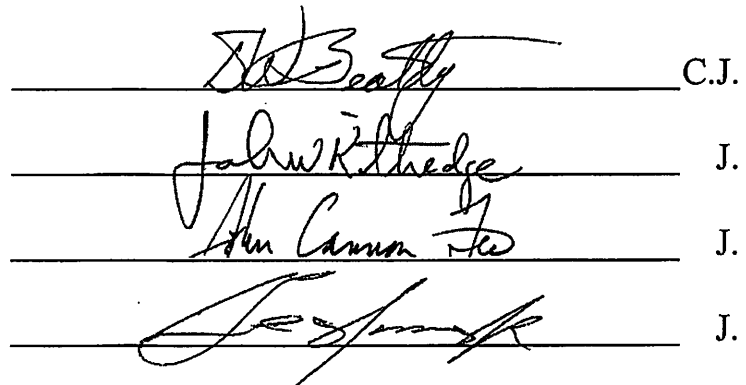 Beatty C.J.
John W Kittredge J.
John Cannon Few J.
J.